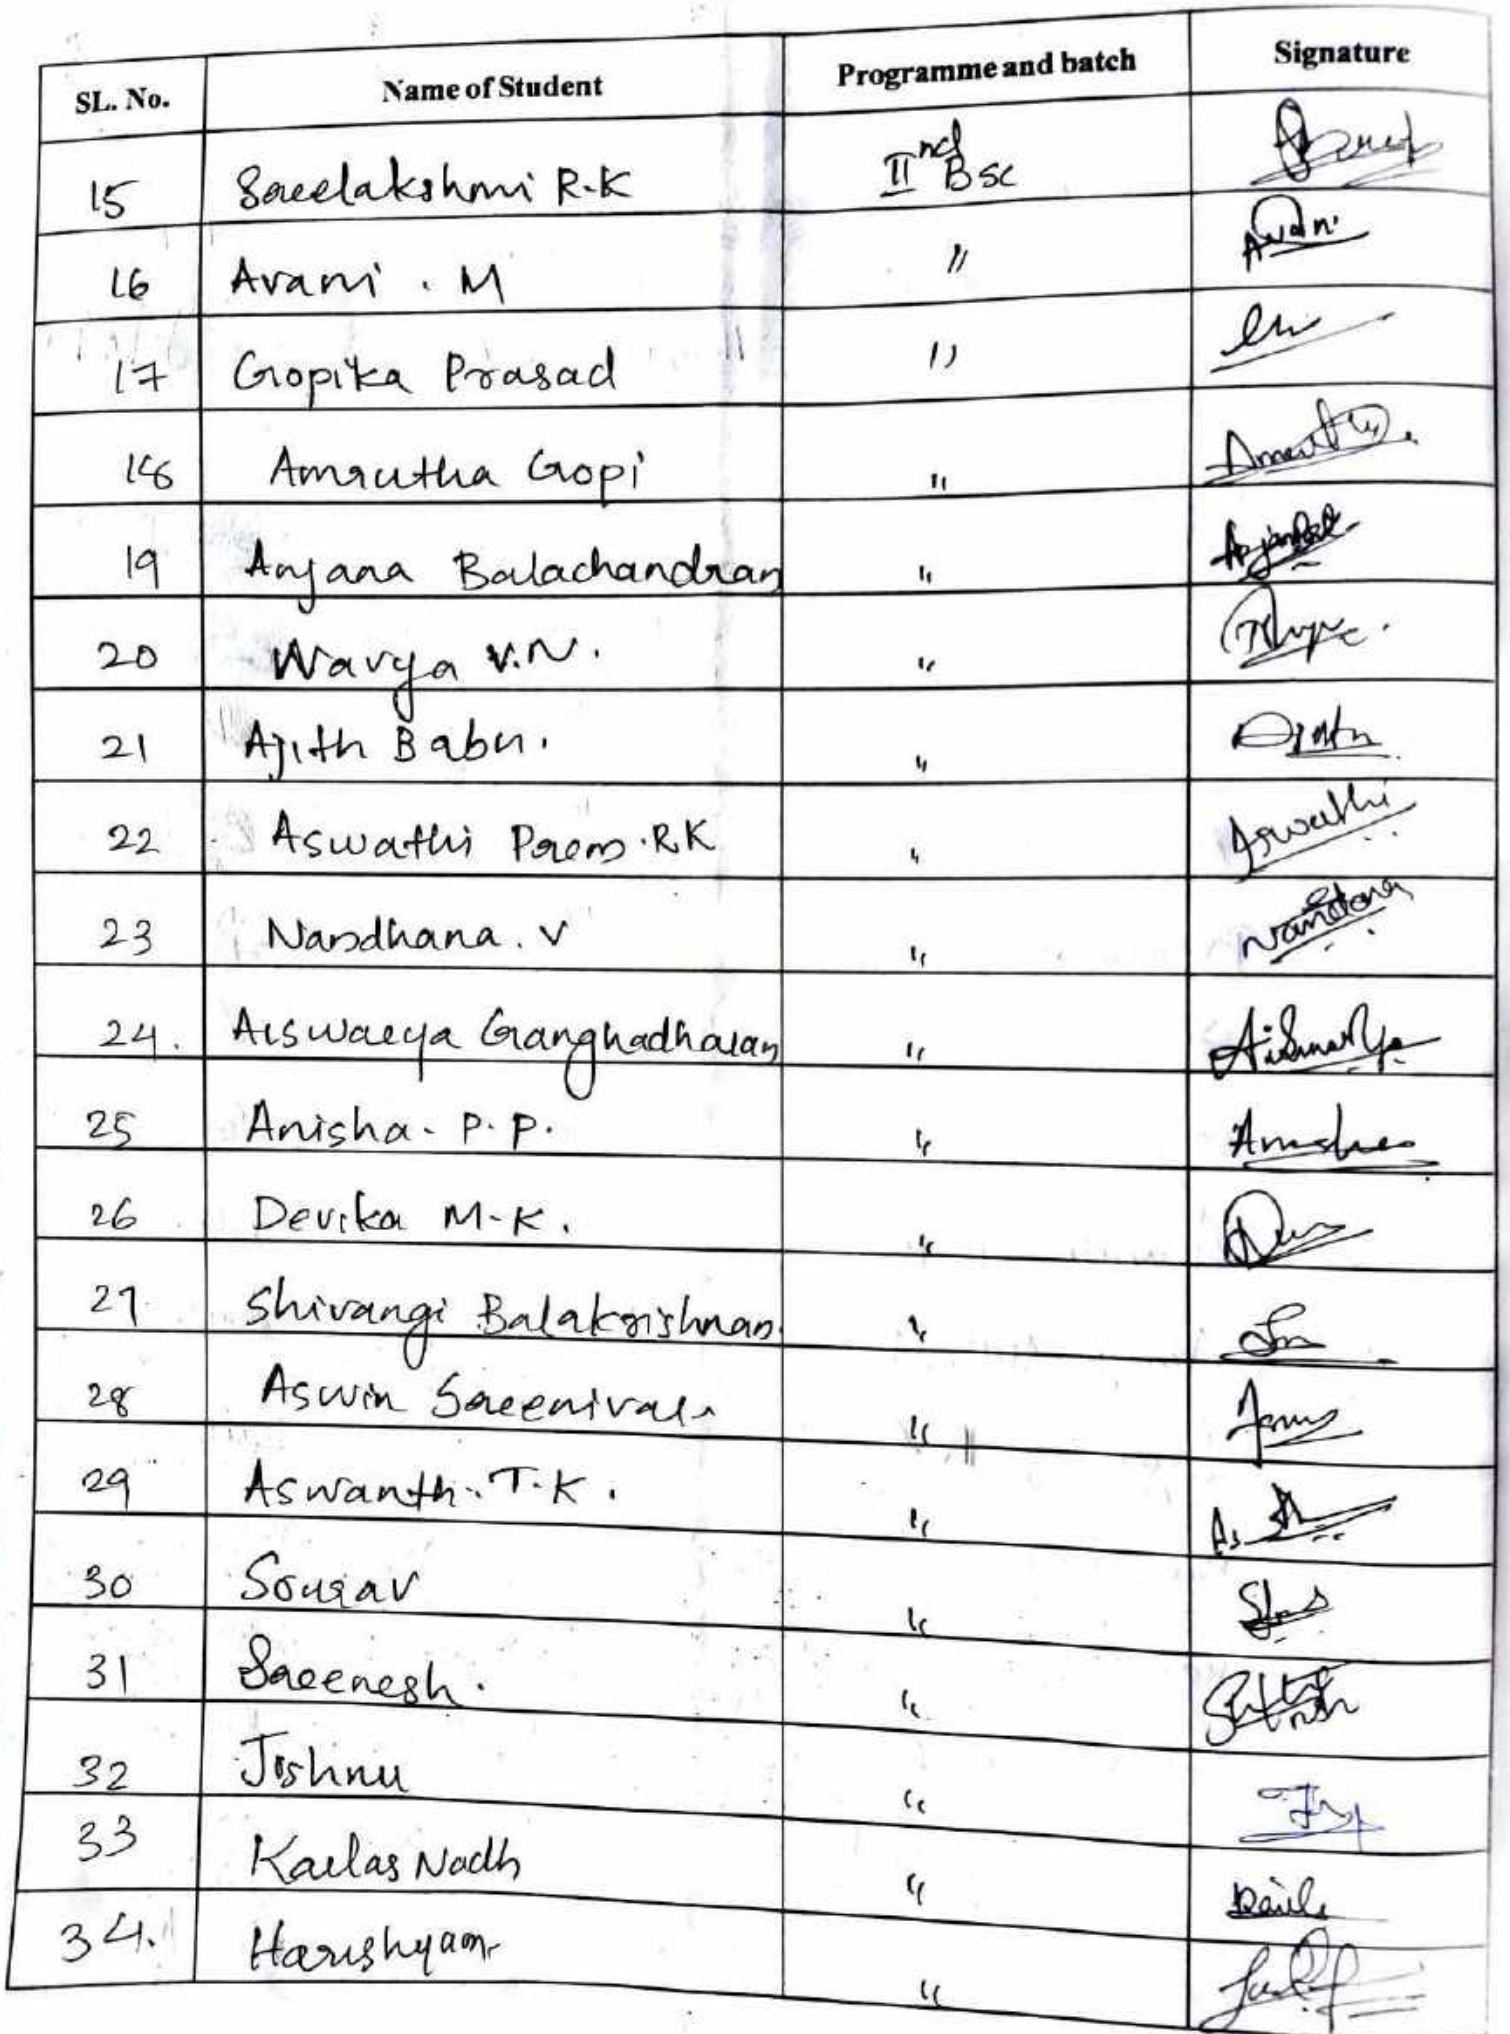 SL. No. Name of Student Programme and batch Signature
15 Sreelakshmi R.K IInd BSc
16 Avani . M " Avani
17 Gopika Prasad "
18 Amrutha Gopi "
19 Anjana Balachandran "
20 V.N. "
21 Ajith Babu. "
22 Aswathi Prem. R.K " Aswathi
23 Nandhana. V " Nandana
24. Aiswarya Ganghadharan " Aiswarya
25 Anisha. P. P. " Anisha
26 Devika M.K. "
27 Shivangi Balakrishnan "
28 Aswin "
29 Aswanth. T.K. "
30 Sourav "
31 Sreenesh. "
32 Jishnu "
33 Kailas Nadh "
34. Harishyam "